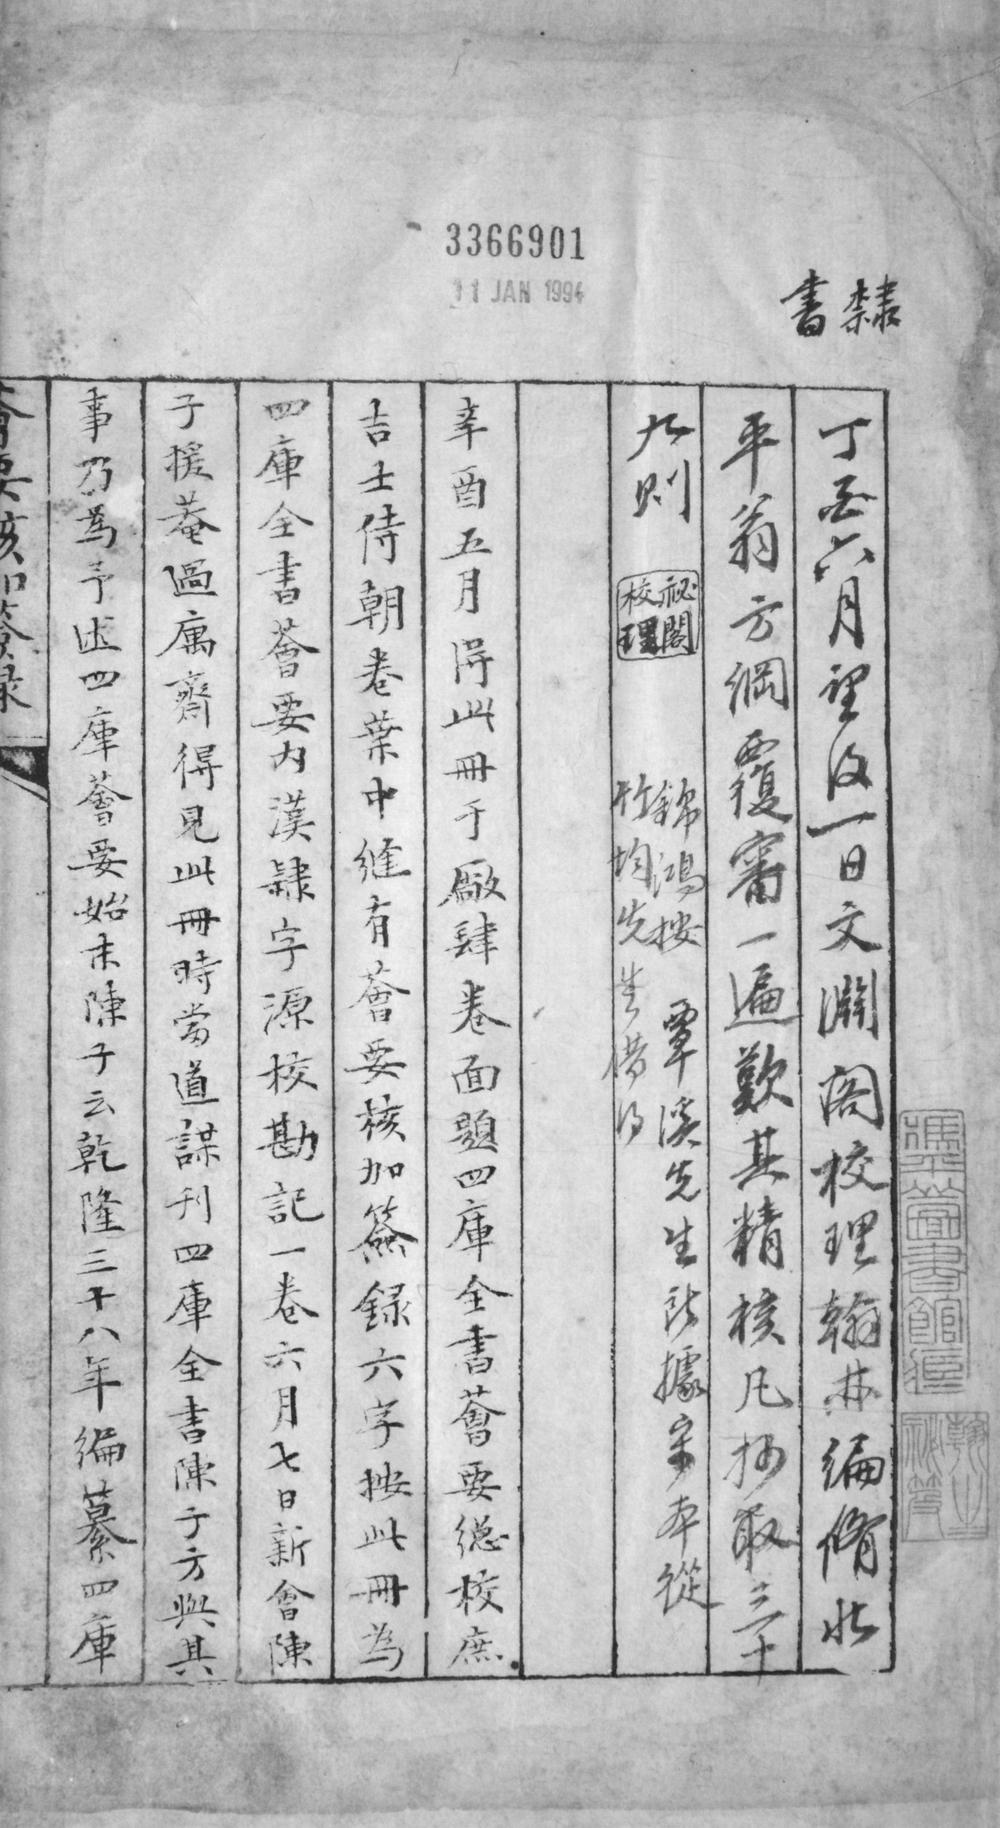 3366901
11 JAN 1994
隸書
丁丑六月望後一日文淵閣校理翰林編脩北
平翁方綱覆審一遍歎其精核凡抄取三十
九則
祕閣
校理
錦鴻按覃溪先生所據宋本從
竹均先生借得
辛酉五月得此冊于廠肆卷面題四庫全書薈要總校庶
吉士侍朝卷葉中縫有薈要核加簽録六字按此冊為
四庫全書薈要内漢隸字源校勘記一卷六月七日新會陳
子援菴過厲齋得見此冊時當道謀刊四庫全書陳子方與其
事乃為予述四庫薈要始末陳子云乾隆三十八年編纂四庫
薈要核加簽録